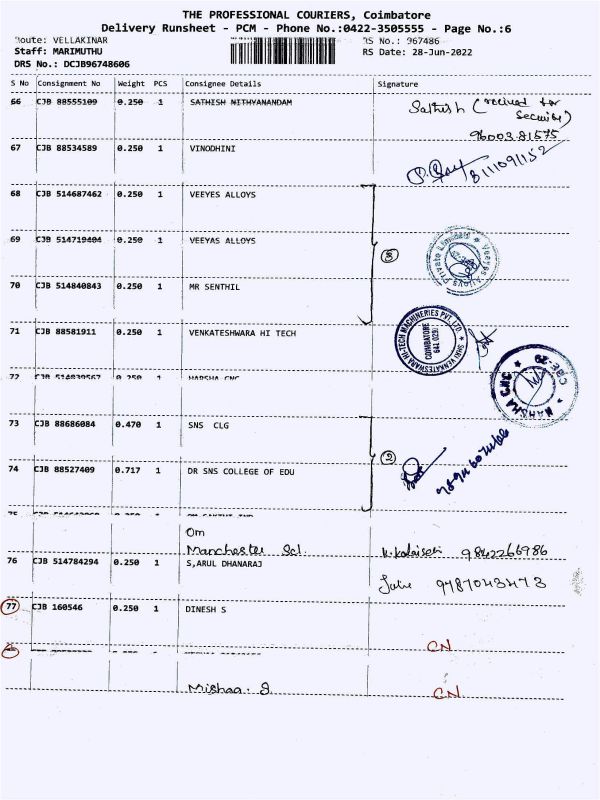 THE PROFESSIONAL COURIERS, Coimbatore
Delivery Runsheet - PCM - Phone No.:0422-3505555 - Page No.:6
Route: VELLAKINAR RS No.: 967486
Staff: MARIMUTHU RS Date: 28-Jun-2022
DRS No.: DCJB96748606
S No Consignment No Weight PCS Consignee Details Signature
66 CJB 88555109 0.250 1 SATHISH NITHYANANDAM
Sathish
96003 81575
67 CJB 88534589 0.250 1 VINODHINI
8111091152
68 CJB 514687462 0.250 1 VEEYES ALLOYS
69 CJB 514719404 0.250 1 VEEYAS ALLOYS
3
Veeyes Alloys Private Limited
70 CJB 514840843 0.250 1 MR SENTHIL
71 CJB 88581911 0.250 1 VENKATESHWARA HI TECH
SHRI VENKATESHWARA HI-TECH MACHINERIES PVT. LTD
COIMBATORE
641 029
72 CJB 514839567 0.250 HARSHA CNC
HARSHA CNC CBE-29
73 CJB 88686084 0.470 1 SNS CLG
2
74 CJB 88527409 0.717 1 DR SNS COLLEGE OF EDU
75
Om
Manchester Scl. 9842266986
76 CJB 514784294 0.250 1 S,ARUL DHANARAJ
9487043473
77 CJB 160546 0.250 1 DINESH S
CN
Mishaa. J
CN